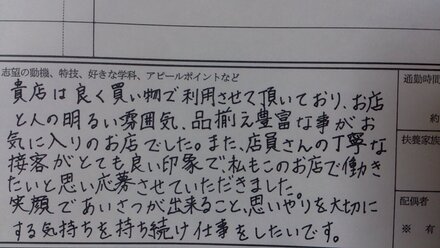 志望の動機、特技、好きな学科、アピールポイントなど
通勤時間
約
貴店は良く買い物で利用させて頂いており、お店
と人の明るい雰囲気、品揃え豊富な事がお
気に入りのお店でした。また、店員さんの丁寧な
接客がとても良い印象で、私もこのお店で働き
たいと思い応募させていただきました。
笑顔であいさつが出来ること、思いやりを大切に
する気持ちを持ち続け仕事をしたいです。
扶養家族
配偶者
※ 有